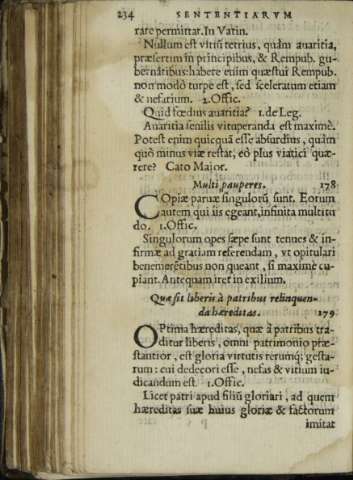 234 SENTENTIARVM
rare permittat. In Vatin.
Nullum est vitiũ tetrius, quàm auaritia,
præsertim in principibus, & Rempub. gu-
bernãtibus: habere enim quæstui Rempub.
non modò turpe est, sed sceleratum etiam
& nefarium. 2. Offic.
Quid fœdius auaritia? 1. de Leg.
Auaritia senilis vituperanda est maximè.
Potest enim quicquã esse absurdius, quàm
quò minus viæ restat, eò plus viatici quæ-
rere? Cato Maior.
Multi pauperes. 178
COpiæ paruæ singulorũ sunt. Eorum
autem qui iis egeant, infinita multitu
do. 1. Offic.
Singulorum opes sæpe sunt tenues & in-
firmæ ad gratiam referendam, vt opitulari
benemerẽtibus non queant, si maximè cu-
piant. Antequam iret in exilium.
Quæ sit liberis à patribus relinquen-
da hæreditas. 179
OPtima hæreditas, quæ à patribus tra-
ditur liberis, omni patrimonio præ-
stantior, est gloria virtutis rerumq; gesta-
rum: cui dedecori esse, nefas & vitium iu-
dicandum est. 1. Offic.
Licet patri apud filiũ gloriari, ad quem
hæreditas suæ huius gloriæ & factorum
imitat